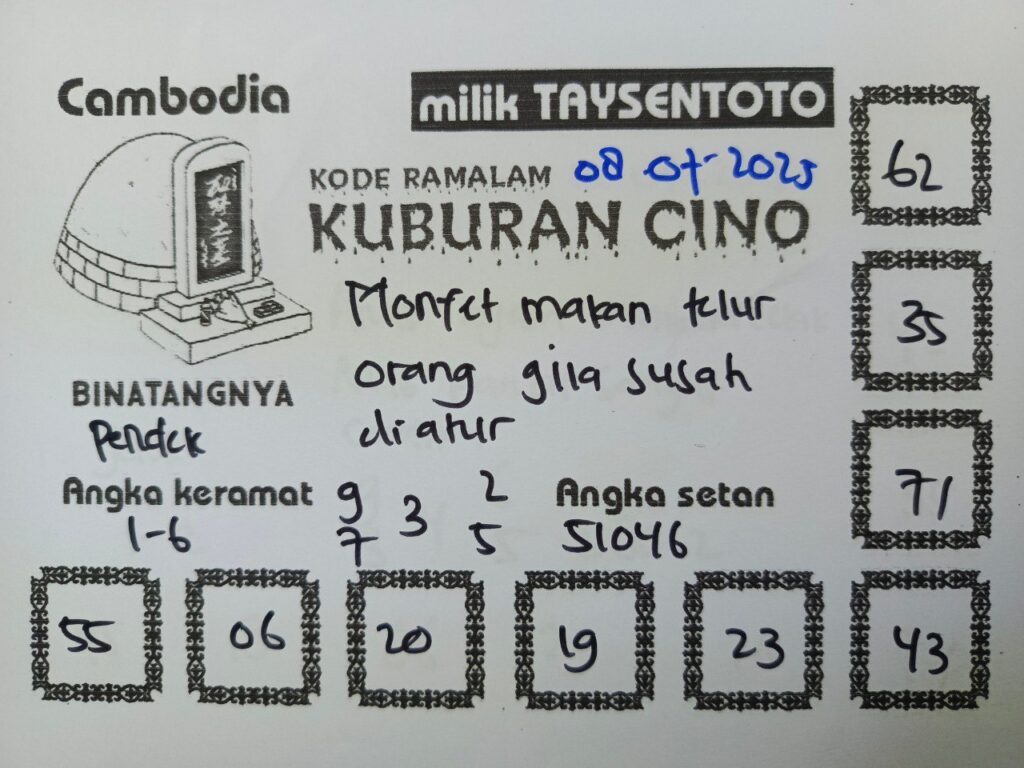 Cambodia
milik TAYSENTOTO
KODE RAMALAM 08-07-2025
KUBURAN CINO
Monyet makan telur
orang gila susah
diatur
BINATANGNYA
Pendek
Angka keramat
1-6
9 2
3
7 5
Angka setan
51046
62
35
71
55 06 20 19 23 43